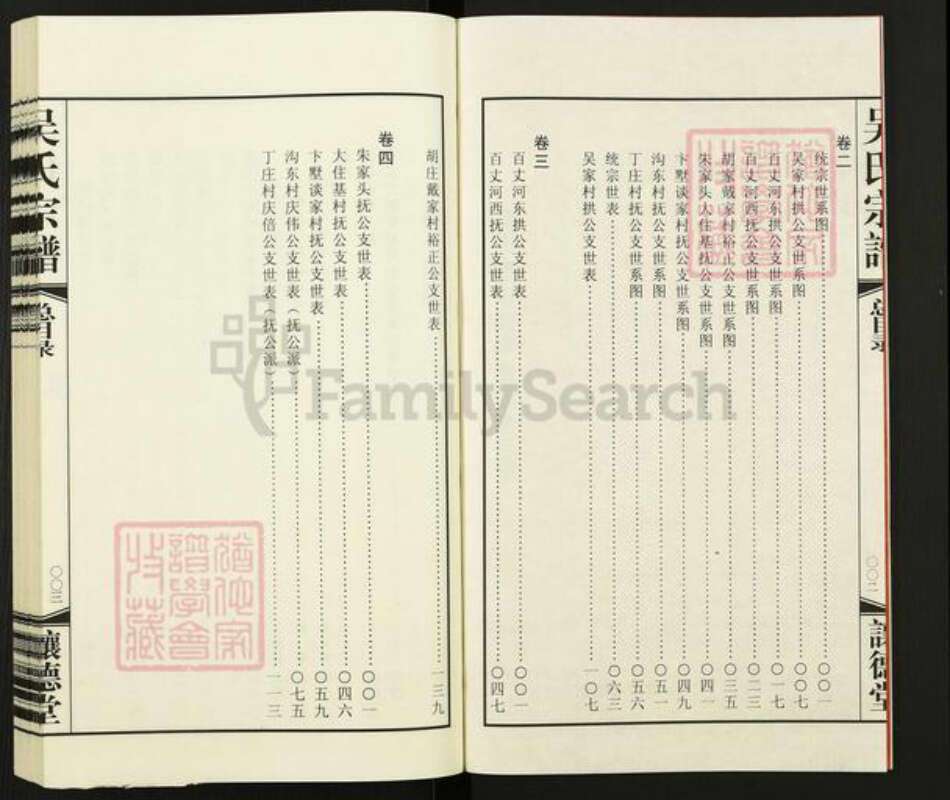 吴氏宗谱
总目录
〇〇二
让德堂
卷二
统宗世系图 〇〇一
吴家村拱公支世系图 〇〇七
百丈河东拱公支世系图 〇一七
百丈河西抚公支世系图 〇二三
胡家戴家村裕正公支世系图 〇三五
朱家头大住基抚公支世系图 〇四一
卞墅谈家村抚公支世系图 〇四九
沟东村抚公支世系图 〇五一
丁庄村抚公支世系图 〇五六
统宗世表 〇六三
吴家村拱公支世表 一〇七
卷三
百丈河东拱公支世表 〇〇一
百丈河西抚公支世表 〇四七
胡庄戴家村裕正公支世表 一三九
卷四
朱家头抚公支世表 〇〇一
大住基村抚公支世表 〇四六
卞墅谈家村抚公支世表 〇五九
沟东村庆伟公支世表（抚公派） 〇七五
丁庄村庆倍公支世表（抚公派） 一一三
吴氏宗谱
总目录
〇〇三
讓德堂
FamilySearch